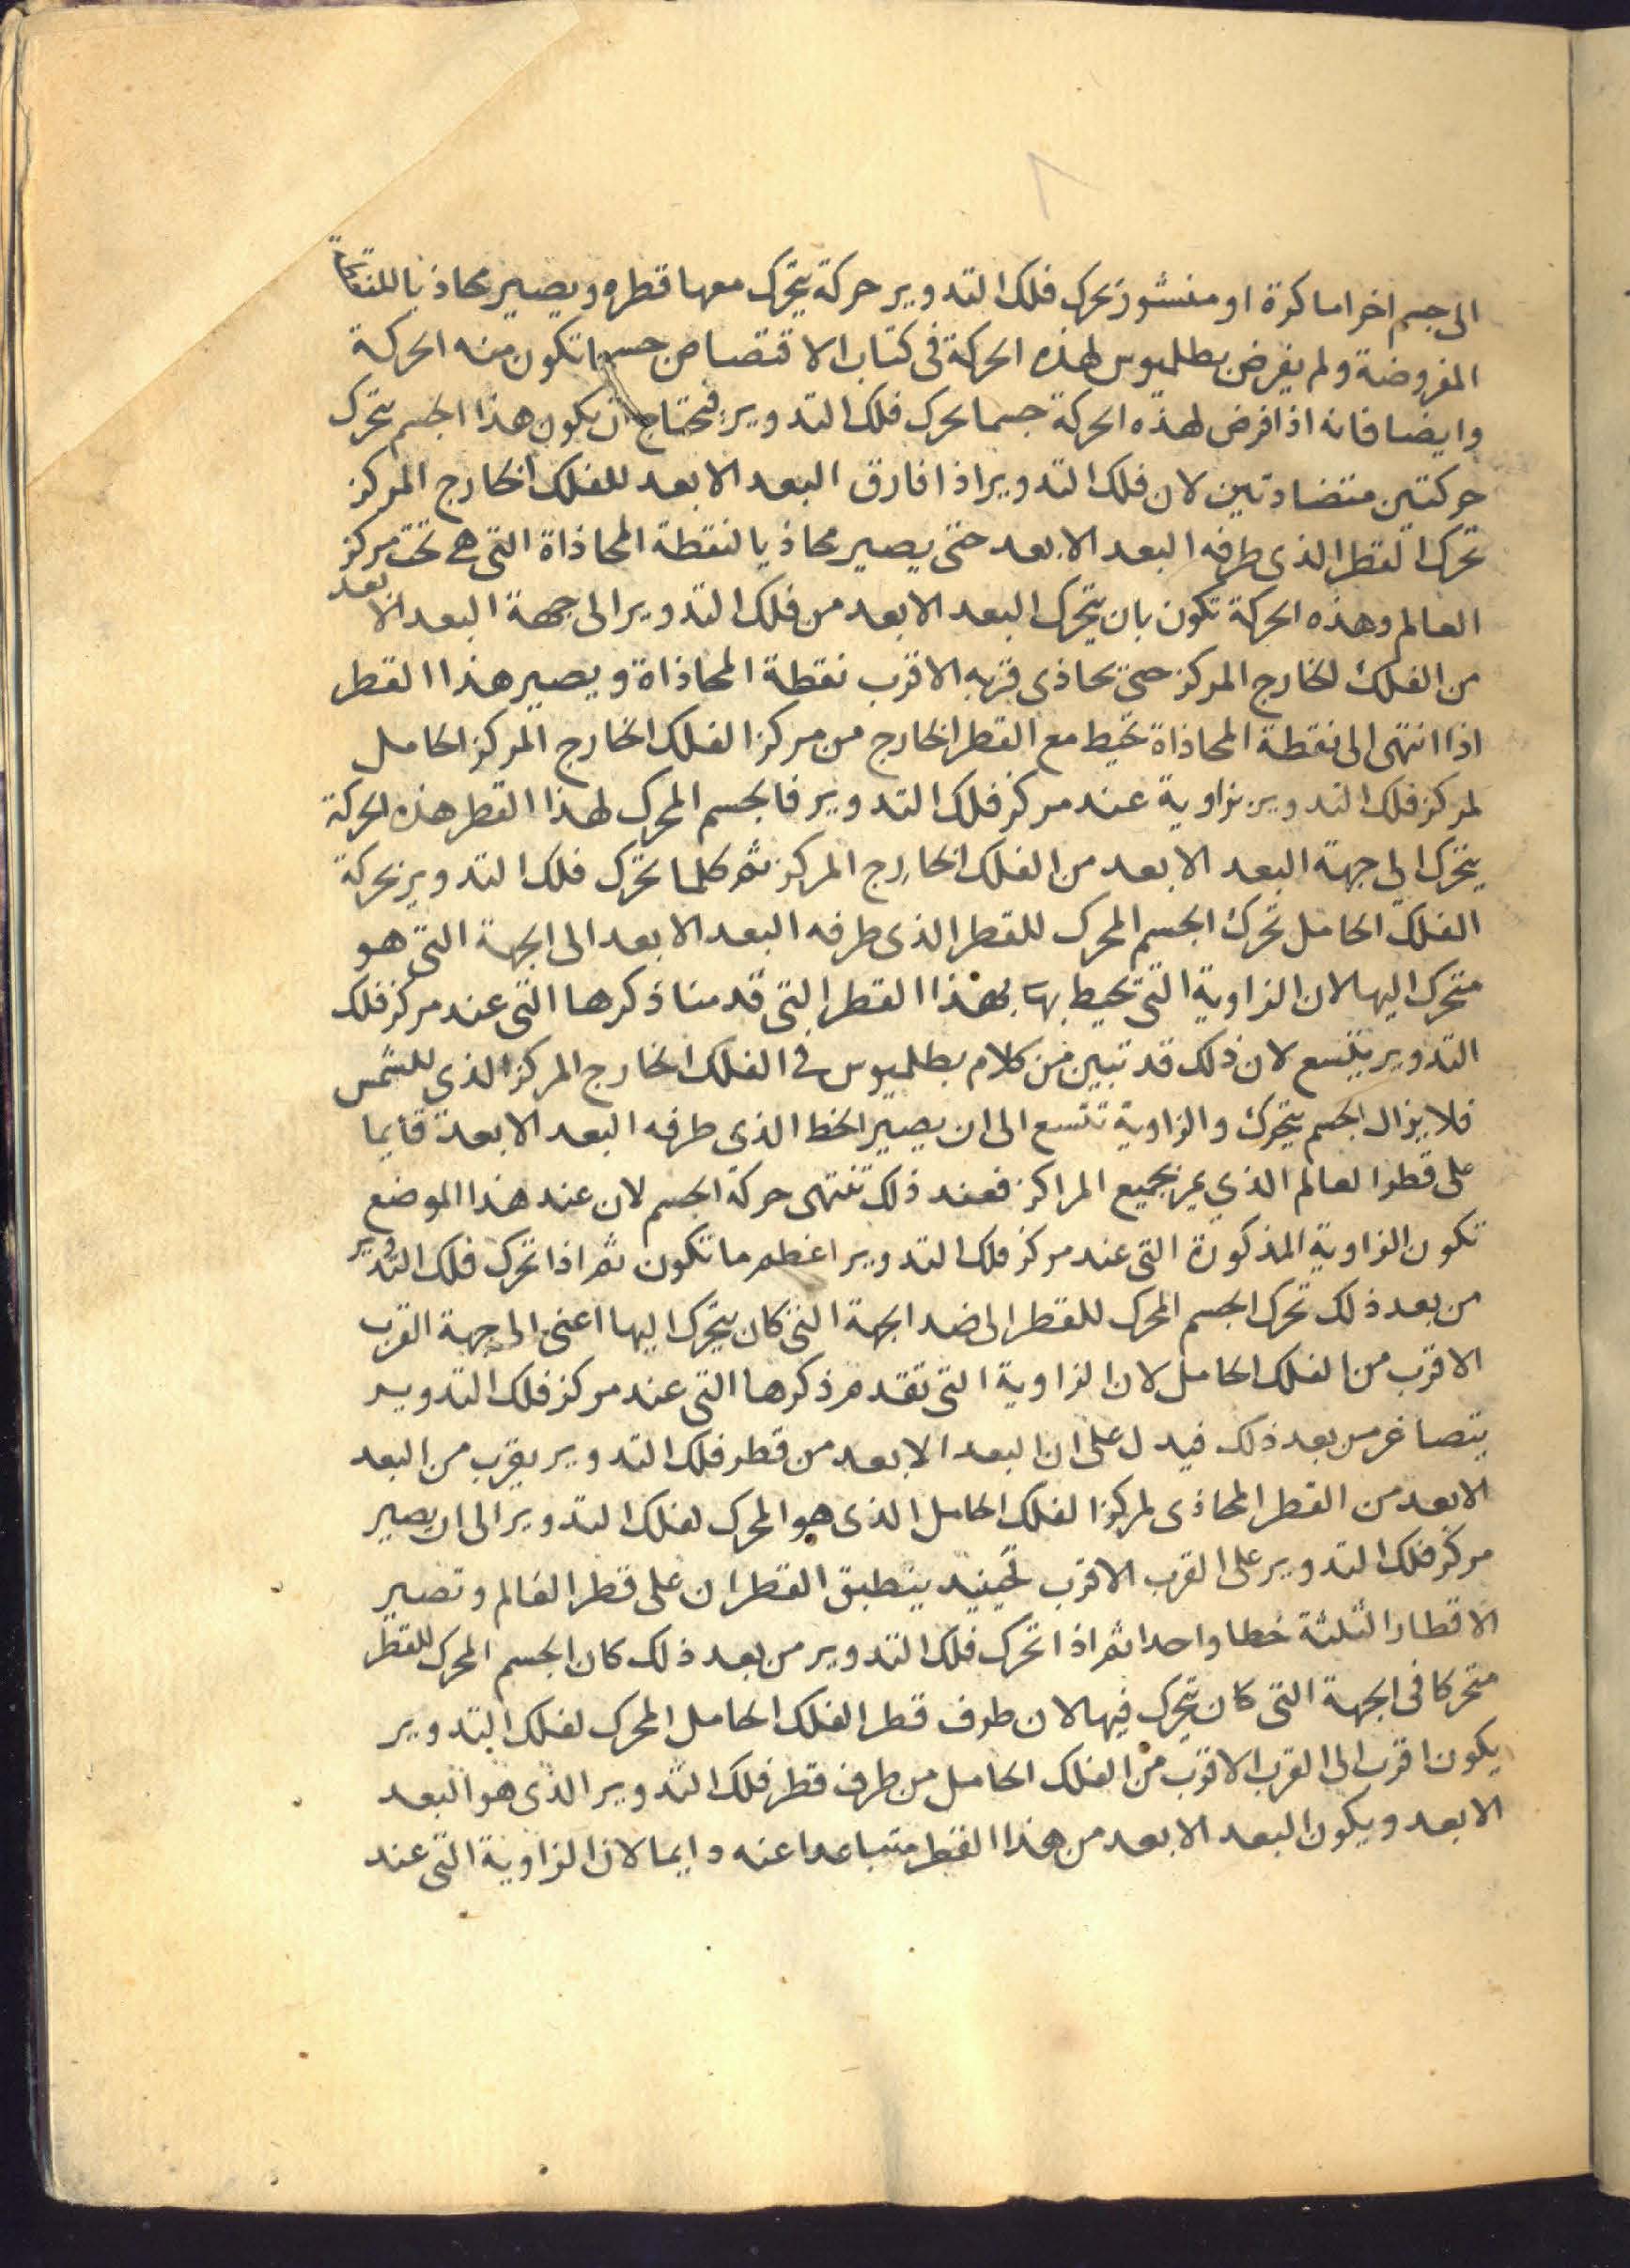 ٨
الى جسم اخر اما كرة او منشور يحرك فلك التدوير حركة يتحرك معها قطره ويصير محاذيا للنقطة
المفروضة ولم يفرض بطلميوس لهذه الحركة فى كتاب الاقتصاص جسما تكون منه الحركة
وايضا فانه اذا فرض لهذه الحركة جسما يحرك فلك التدوير فيحتاج ان يكون هذا الجسم يتحرك
حركتين متضادتين لان فلك التدوير اذا فارق البعد الابعد للفلك الخارج المركز
تحرك القطر الذى طرفه البعد الابعد حتى يصير محاذيا لنقطة المحاذاة التى هى تحت مركز
العالم وهذه الحركة تكون بان يتحرك البعد الابعد من فلك التدوير الى جهة البعد الابعد
من الفلك الخارج المركز حتى تحاذى قربه الاقرب نقطة المحاذاة ويصير هذا القطر
اذا انتهى الى نقطة المحاذاة تحيط مع القطر الخارج من مركز الفلك الخارج المركز الحامل
لمركز فلك التدوير بزاوية عند مركز فلك التدوير فالجسم المحرك لهذا القطر هذه الحركة
يتحرك الى جهة البعد الابعد من الفلك الخارج المركز ثم كلما تحرك فلك التدوير بحركة
الفلك الحامل تحرك الجسم المحرك للقطر الذى طرفه البعد الابعد الى الجهة التى هو
متحرك اليها لان الزاوية التى تحيط بها بهذا القطر التى قدمنا ذكرها التى عند مركز فلك
التدوير يتسع لان ذلك قد تبين من كلام بطلميوس فى الفلك الخارج المركز الذى للشمس
فلا يزال الجسم يتحرك والزاوية تتسع الى ان يصير الخط الذى طرفه البعد الابعد قايما
على قطر العالم الذى يمر بجميع المراكز فعند ذلك تنتهى حركة الجسم لان عند هذا الموضع
تكون الزاوية المذكورة التى عند مركز فلك التدوير اعظم ما تكون ثم اذا تحرك فلك التدوير
من بعد ذلك تحرك الجسم المحرك للقطر الى ضد الجهة التى كان يتحرك اليها اعنى الى جهة القرب
الاقرب من الفلك الحامل لان الزاوية التى تقدم ذكرها التى عند مركز فلك التدوير
يتصاغر من بعد ذلك فيدل على ان البعد الابعد من قطر فلك التدوير يقرب من البعد
الابعد من القطر المحاذى لمركز الفلك الحامل الذى هو المحرك لفلك التدوير الى ان يصير
مركز فلك التدوير على القرب الاقرب فحينيذ ينطبق القطران على قطر العالم وتصير
الاقطار الثلثة خطا واحدا ثم اذا تحرك فلك التدوير من بعد ذلك كان الجسم المحرك للقطر
متحركا فى الجهة التى كان يتحرك فيها لان طرف قطر الفلك الحامل المحرك لفلك التدوير
يكون اقرب الى القرب الاقرب من الفلك الحامل من طرف قطر فلك التدوير الذى هو البعد
الابعد ويكون البعد الابعد من هذا القطر متباعدا عنه دايما لان الزاوية التى عند